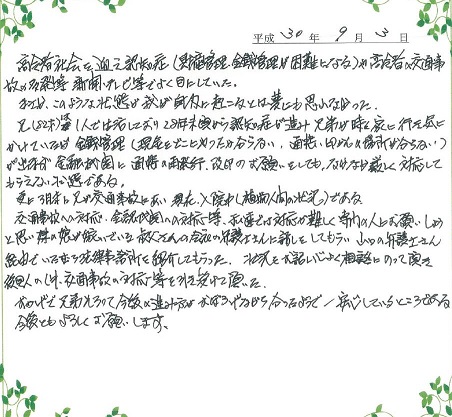 平成 30 年 9 月 3 日
高令者社会を迎え認知症(財産管理、金銭管理が困難になる)や高令者の交通事
故の多発等 新聞、テレビ等でよく目にしていた。
まさか、このような状態が我が身内に起こるとは夢にも思わなかった。
兄(82才)は1人で生活しており28年末頃から認知症が進み 兄弟が時々家に行き気に
かけているが 金銭管理(現金をどこにやったか分からない、通帳、印かんの場所が分らない)
が出来ず 金融機関に通帳の再発行、改印のお願いをしても、なかなか厳しく対応して
もらえない状態である。
更に3月末に兄が交通事故にあい 現在、入院中(植物人間の状況)である
交通事故への対応、金融機関への対応等、私達では対応が難しく専門の人にお願いしよう
と思い 娘が働いている 会社の弁護士さんに話をしてもらい 弁護士さん
法律事務所を紹介してもらった。 状況をお話し心よく相談にのって頂き
後見人の件、交通事故の対応等を引き受けて頂いた。
おかげで兄弟そろって今後の進み方が分ったようで一安心しているところである
今後ともよろしくお願いします。